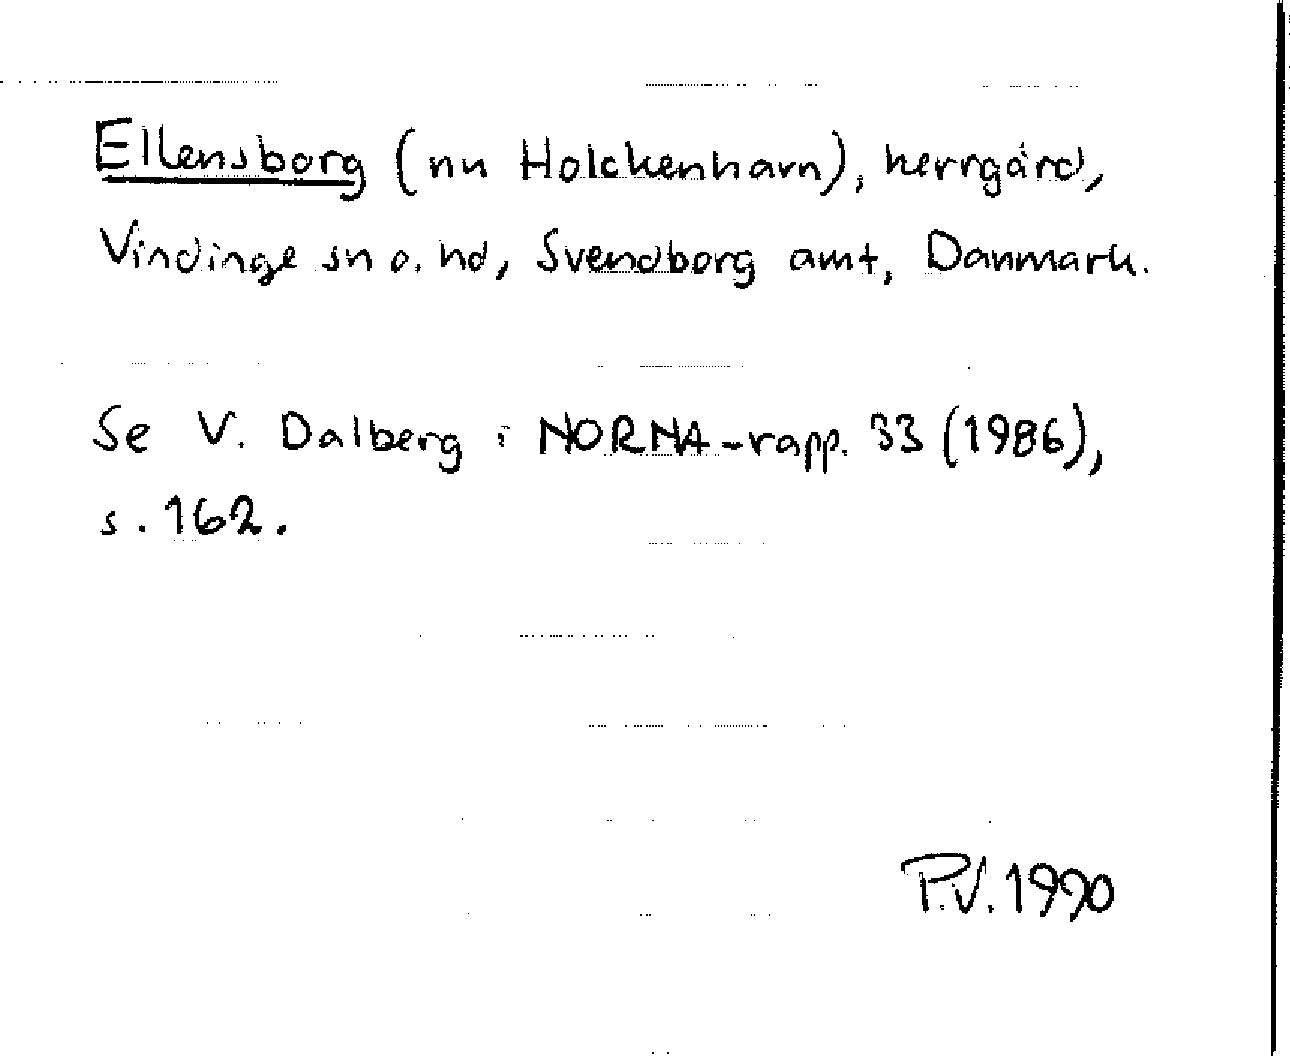 Ellensborg (nu Holckenhavn), herrgård,
Vindinge sn o. hd, Svendborg amt, Danmark.
Se V. Dalberg i NORNA-rapp. 33 (1986),
s. 162.
P.V. 1990